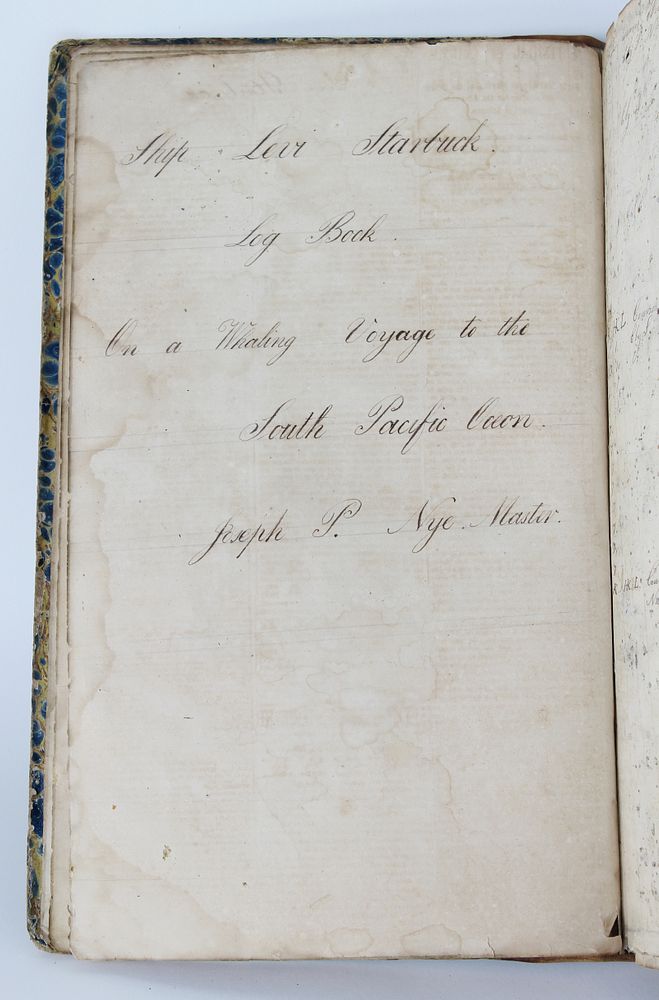 Ship Levi Starbuck.
Log Book.
On a Whaling Voyage to the
South Pacific Oceon.
Joseph P. Nye. Master.